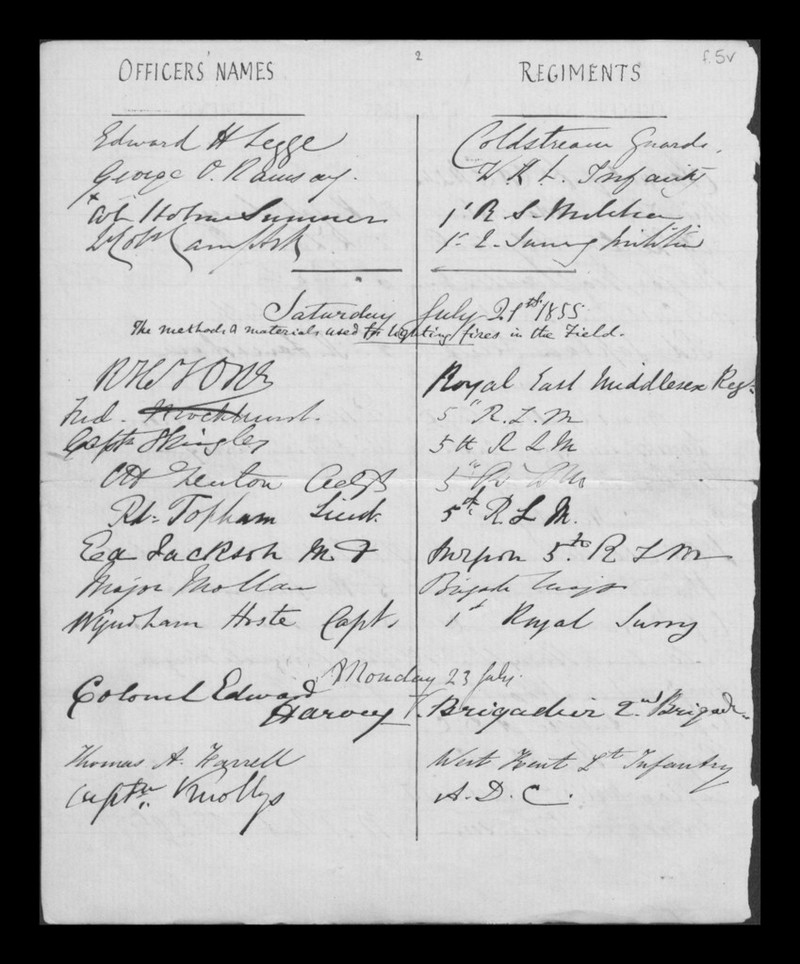 2
f. 5v
OFFICERS' NAMES REGIMENTS
Edward H Legge Coldstream Guards.
George O. Ramsay. W. K. L. Infantry
x Col Holme Sumner 1st R. S. Militia
1st R. Surrey Militia
Saturday July 21st 1855
The methods & materials used for lighting fires in the Field.
Royal East Middlesex Regt.
Fred. 5th R. L. M
Captn Skingley 5th R L M
Fenton Adjt 5th R L M
Rd. Topham Lieut. 5th R. L M.
Ed Jackson M D Surgeon 5th R L M
Major Mollan Brigade Major
Wyndham Hoste Capt. 1st Royal Surry
Monday 23 July.
Colonel Edward
Harvey Brigadier 2nd Brigade
Thomas A. Farrell West Kent Lt Infantry
Captn Knollys A. D. C.